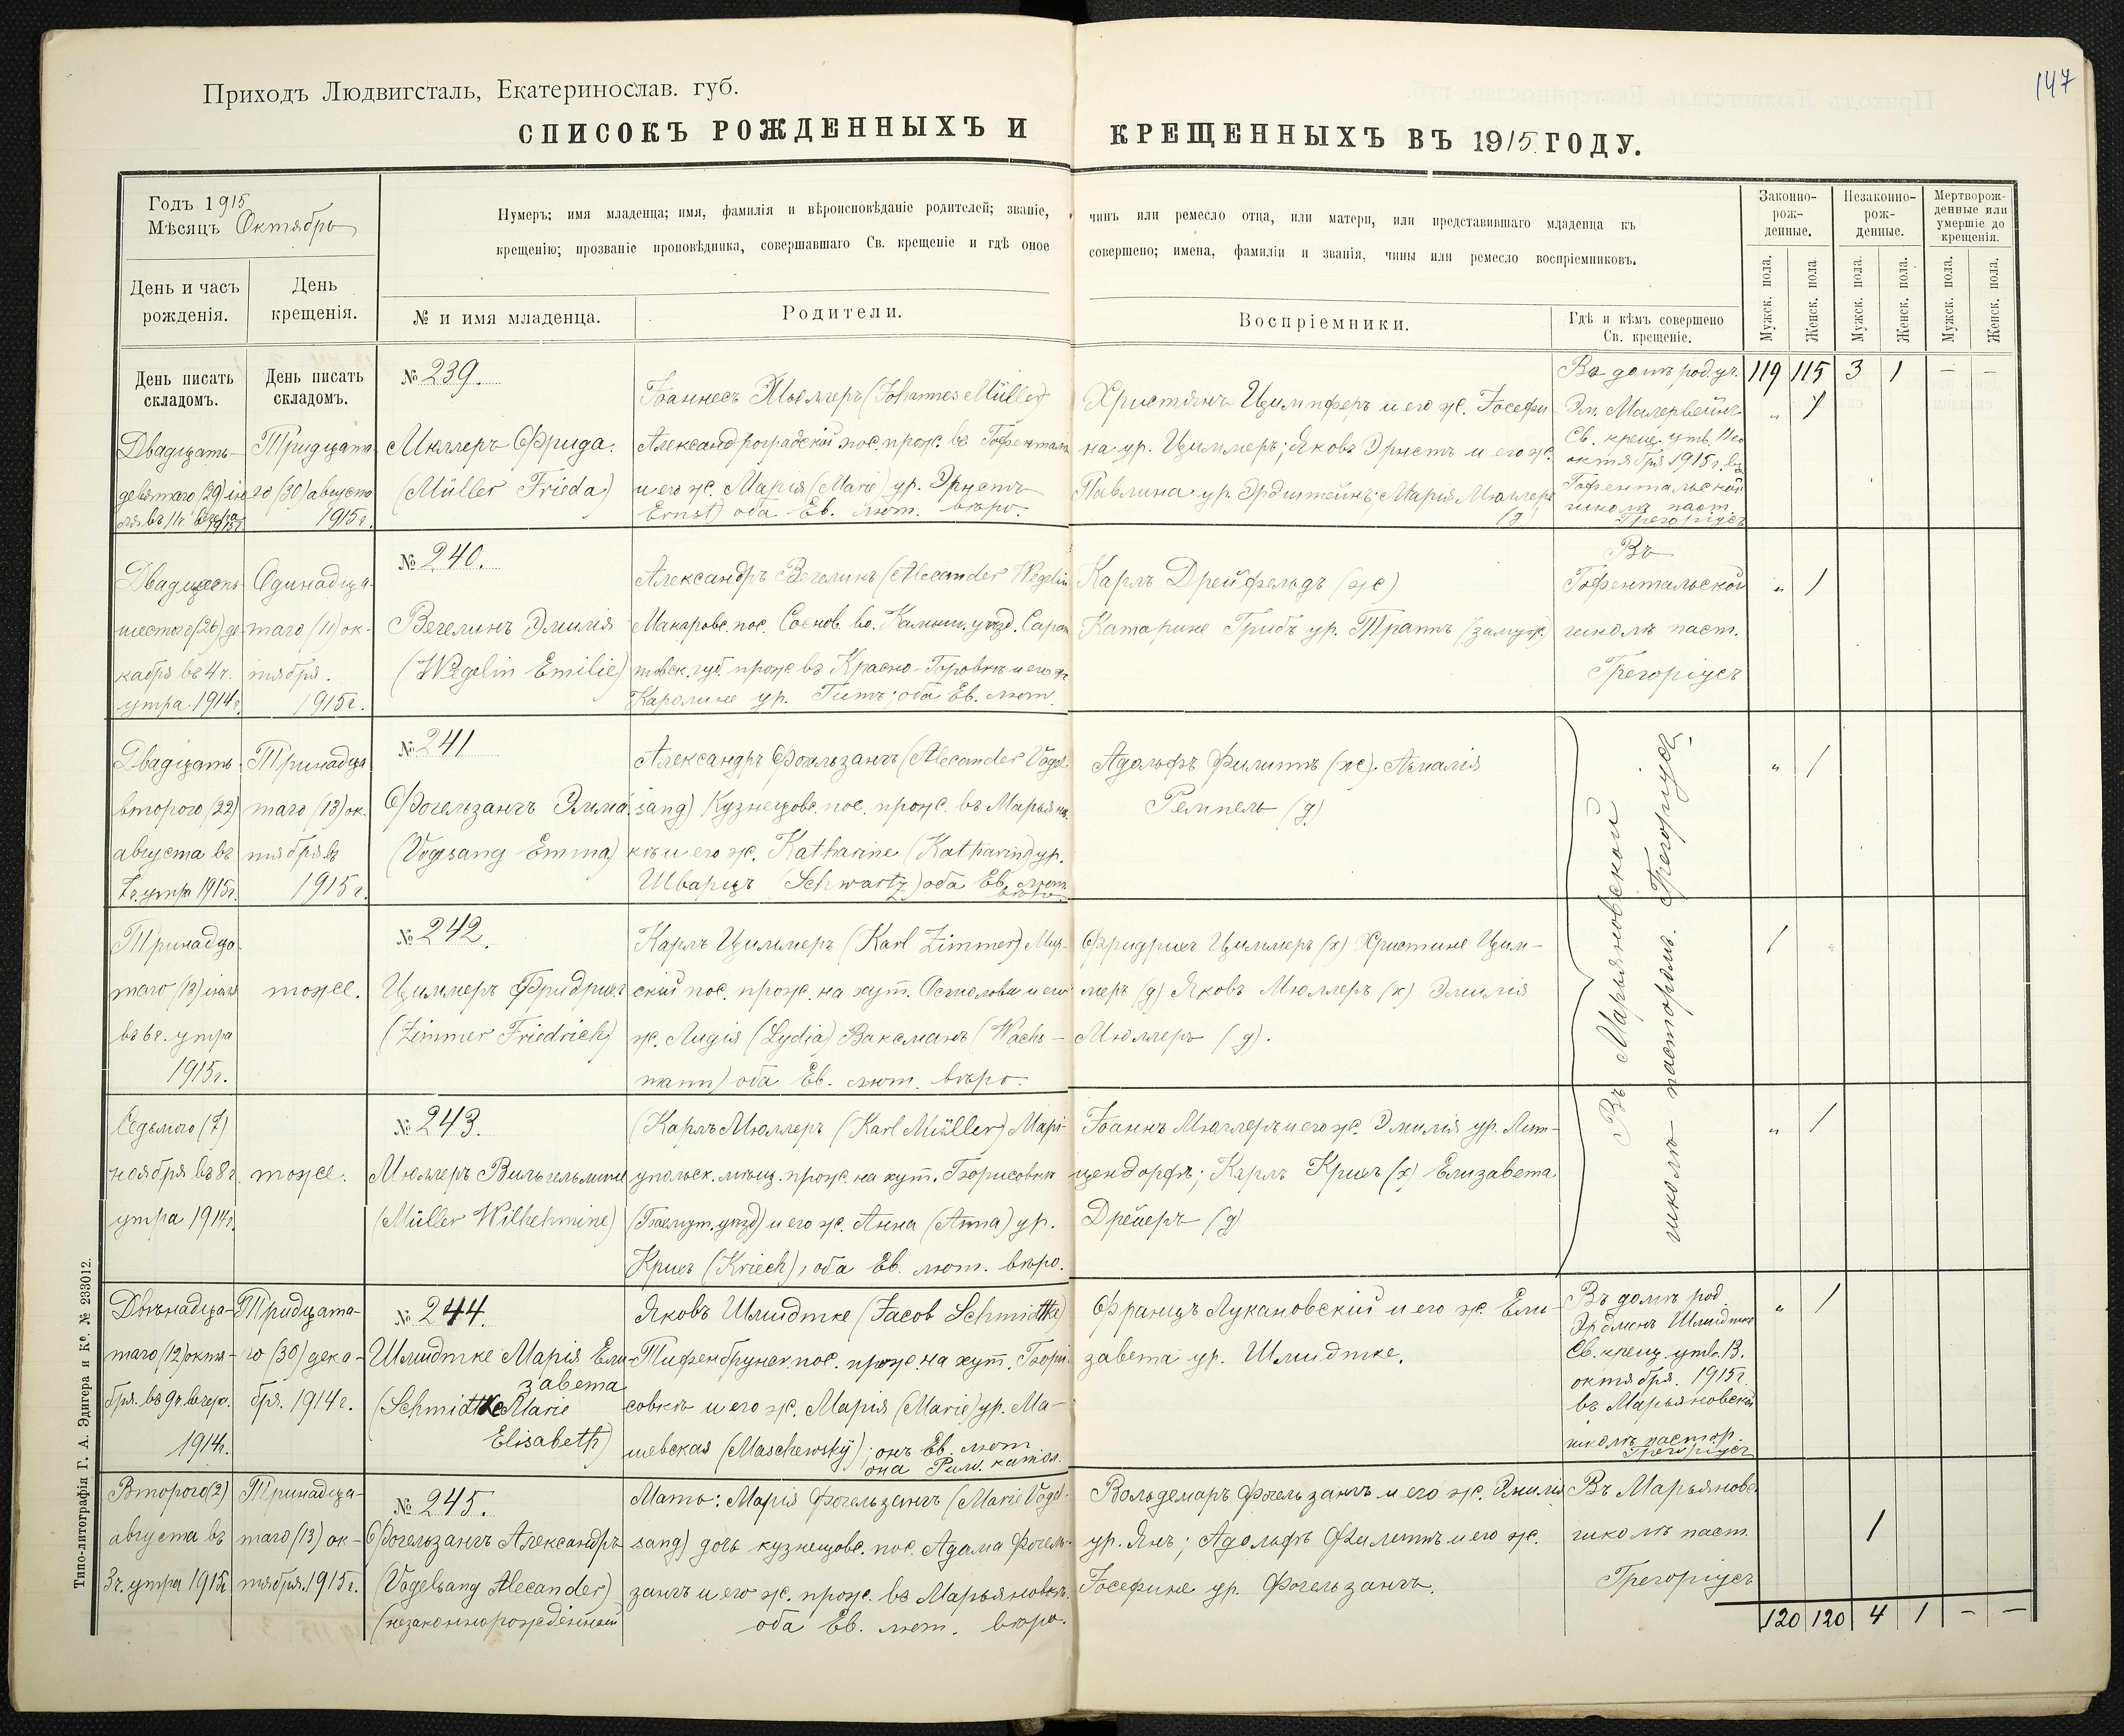 147
Приходъ Людвигсталь, Екатеринослав. губ.
СПИСОКЪ РОЖДЕННЫХЪ И КРЕЩЕННЫХЪ ВЪ 1915 ГОДУ.
Годъ 1915
Мѣсяцъ Октябрь
День и часъ рожденія.
День крещенія.
Нумеръ; имя младенца; имя, фамилія и вѣроисповѣданіе родителей; званіе, чинъ или ремесло отца, или матери, или представившаго младенца къ
крещенію; прозваніе проповѣдника, совершавшаго Св. крещеніе и гдѣ оное совершено; имена, фамиліи и званія, чины или ремесло воспріемниковъ.
№ и имя младенца.
Родители.
Воспріемники.
Гдѣ и кѣмъ совершено
Св. крещеніе.
Законно-
рож-
денные.
Незаконно-
рож-
денные.
Мертворож-
денные или
умершіе до
крещенія.
Мужск. пола.
Женск. пола
Мужск. пола.
Женск. пола.
Мужск. пола.
Женск. пола.
День писать
складомъ.
Двадцать-
девятаго (29) ію
ля въ 11ч вечера
1915г.
День писать
складомъ.
Тридцата-
го (30) августа
1915г.
№ 239.
Мюллеръ Фрида.
(Müller Frieda)
Іоаннесъ Мюллеръ (Johannes Müller)
Александроградской пос. прож. въ Гофенталѣ
и его ж. Марія (Marie) ур. Эрнстъ
Ernst) оба Ев. лют. вѣро.
Христіанъ Цимпферъ и его ж. Іосефи-
на ур. Циммеръ; Яковъ Эрнстъ и его ж.
Павлина ур. Эрдштейнъ; Марія Мюллеръ
(д)
Въ домѣ род. уч.
Эм. Малервейнъ
Св. крещ. утв. 11го
октября 1915г. въ
Гофентальской
школѣ паст.
Грегоріусъ
119 115 3 1 – –
„ 1
Двадцать-
шестого (26) де-
кабря въ 4 ч.
утра 1914г.
Одинадца-
таго (11) ок-
тября.
1915г.
№ 240.
Вегелинъ Эмилія
(Wegelin Emilie)
Александръ Вегелинъ (Alecander Wegelin
Макаровс. пос. Соснов. во. Камыш. уѣзд. Сара-
товск. губ. прож. въ Красно-Горовкѣ и его ж
Каролине ур. Гитъ; оба Ев. лют.
Карлъ Дрейфельдъ (ж)
Катарине Грибъ ур. Траттъ (замуж.)
Въ
Гофентальской
школѣ паст.
Грегоріусъ
„ 1
Двадцать-
второго (22)
августа въ
7ч. утра 1915г.
Тринадца
таго (13) ок-
тября въ
1915г.
№ 241
Фогельзангъ Эмма.
(Vogsang Emma)
Александръ Фогельзангъ (Alecander Vogel-
sang) Кузнецовс. пос. прож. въ Марьянов-
кѣ и его ж. Katharine (Katharina) ур.
Шварцъ (Schwartz) оба Ев. лют.
вѣро.
Адольфъ Филиппъ (ж). Амалія
Ремпель (д)
Въ Марьяновской
школѣ пасторомъ. Грегоріусъ.
„ 1
Тринадца-
таго (13) іюля
въ 6ч. утра
1915г.
тоже.
№ 242.
Циммеръ Фридрихъ
(Zimmer Friedrich)
Карлъ Циммеръ (Karl Zimmer) Мир-
скій пос. прож. на хут. Осполовы и его
ж. Лидія (Lydia) Ваксманъ (Wachs-
mann) оба Ев. лют. вѣро.
Фридрихъ Циммеръ (х) Христине Цим-
меръ (д) Яковъ Мюллеръ (х) Эмилія
Мюллеръ (д).
1 „
Седьмого (7)
ноября въ 8ч.
утра 1914г.
тоже.
№ 243.
Мюллеръ Вильгельмине
(Müller Wilhelmine)
(Карлъ Мюллеръ (Karl Müller) Марі-
упольск. мѣщ. прож. на хут. Борисовкѣ
(Бахмут. уѣзд) и его ж. Анна (Anna) ур.
Крихъ (Kriech), оба Ев. лют. вѣро.
Іоаннъ Мюллеръ и его ж. Эмилія ур. Лит-
цендорфъ; Карлъ Крихъ (х) Елизавета
Дрейеръ (д)
„ 1
Двѣнадца-
таго (12) октя-
бря. въ 9ч. вечера.
1914г.
Тридцата-
го (30) дека-
бря. 1914г.
№ 244.
Шмидтке Марія Ели-
завета
(Schmidtke Marie
Elisabeth)
Яковъ Шмидтке (Jacob Schmidtke)
Тифенбрунск. пос. прож. на хут. Бори-
совкѣ и его ж. Марія (Marie) ур. Ма-
шевская (Maschewsky); онъ Ев. лют.
она Рим. катол.
Францъ Лукановскій и его ж. Ели-
завета ур. Шмидтке.
Въ домѣ род.
Эрдманъ Шмидтке
Св. крещ. утв. 13.
октября. 1915г.
въ Марьяновской
школѣ пастор.
Грегоріусъ
„ 1
Второго (2)
августа въ
3ч. утра 1915г
Тринадца-
таго (13) ок-
тября. 1915г.
№ 245.
Фогельзангъ Александръ
(Vogelsang Alecander)
(незаконнорожденный
Мать: Марія Фогельзангъ (Marie Vogel-
sang) дочь кузнецовс. пос. Адама Фогель-
зангъ и его ж. прож. въ Марьяновкѣ.
оба Ев. лют. вѣро.
Вольдемаръ Фогельзангъ и его ж. Эмилія
ур. Янъ; Адольфъ Филиппъ и его ж.
Іосефине ур. Фогельзангъ.
Въ Марьяновс.
школѣ паст.
Грегоріусъ
1
120 120 4 1 – –
Типо-литографія Г. А. Эдигера и Кº. № 233012.